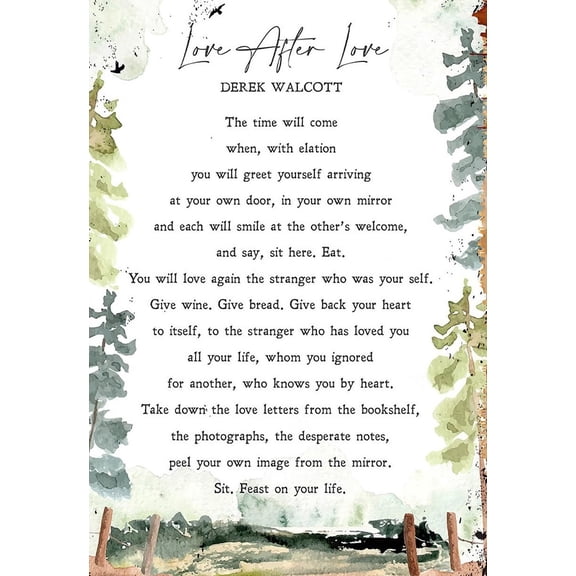 Love After Love
DEREK WALCOTT
The time will come
when, with elation
you will greet yourself arriving
at your own door, in your own mirror
and each will smile at the other's welcome,
and say, sit here. Eat.
You will love again the stranger who was your self.
Give wine. Give bread. Give back your heart
to itself, to the stranger who has loved you
all your life, whom you ignored
for another, who knows you by heart.
Take down the love letters from the bookshelf,
the photographs, the desperate notes,
peel your own image from the mirror.
Sit. Feast on your life.